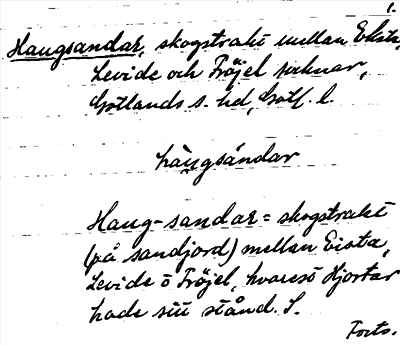 1.
Haugsandar, skogstrakt mellan Eksta,
Levide och Fröjel socknar,
Gotlands s. hd, Gotl. l.
hàųgsándar
Haug-sandar = skogstrakt
(på sandjord) mellan Eista,
Levide o Fröjel, hvarest Hjortar
hade sitt stånd. S.
Forts.